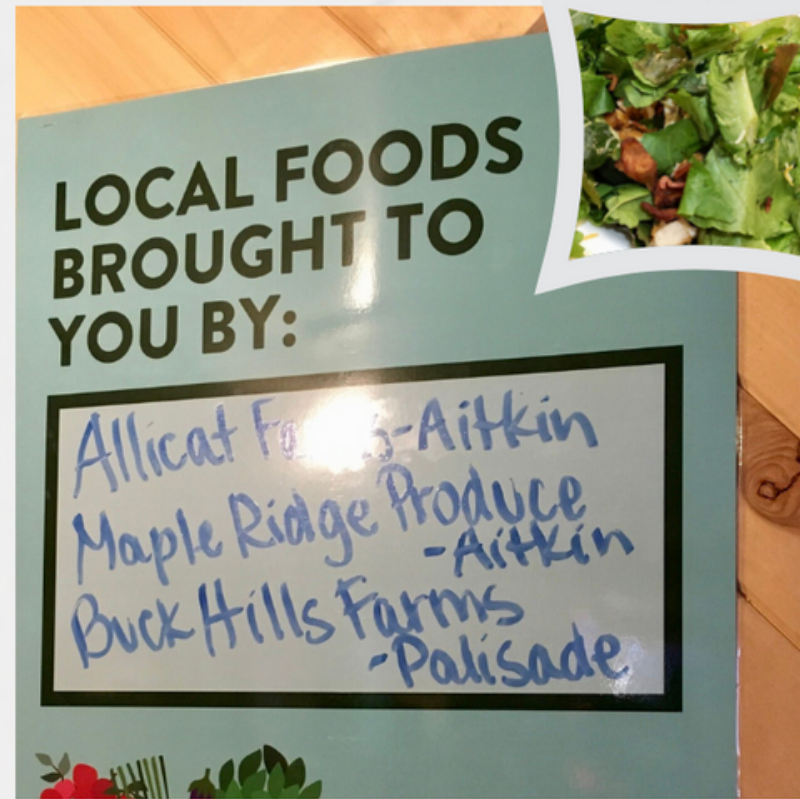 LOCAL FOODS
BROUGHT TO
YOU BY:
Allicat -Aitkin
Maple Ridge Produce
-Aitkin
Buck Hills Farms
-Palisade